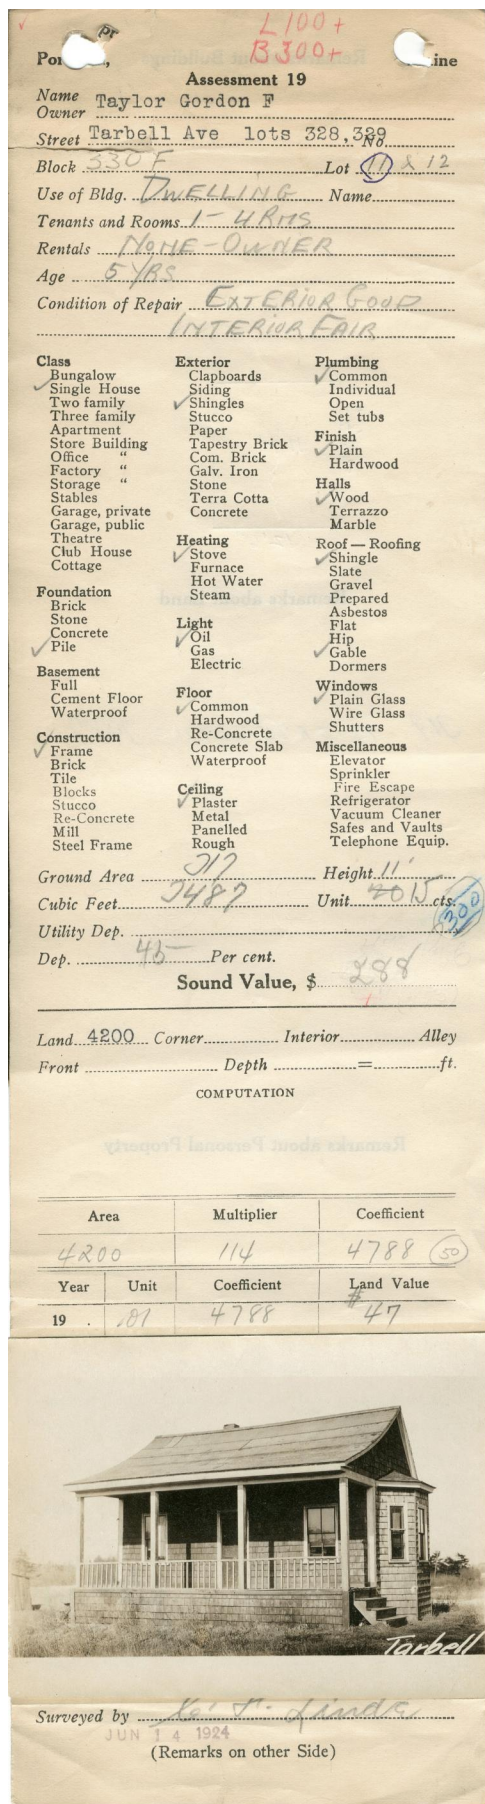 L100+
B300+
Por
ine
Assessment 19
Name
Owner Taylor Gordon F
Street Tarbell Ave lots 328,329 No
Block 330 F Lot 11 & 12
Use of Bldg. DWELLING Name
Tenants and Rooms 1-4 RMS
Rentals NONE-OWNER
Age 5 YRS
Condition of Repair EXTERIOR GOOD
INTERIOR FAIR
Class
Bungalow
Single House
Two family
Three family
Apartment
Store Building
Office "
Factory "
Storage "
Stables
Garage, private
Garage, public
Theatre
Club House
Cottage
Foundation
Brick
Stone
Concrete
Pile
Basement
Full
Cement Floor
Waterproof
Construction
Frame
Brick
Tile
Blocks
Stucco
Re-Concrete
Mill
Steel Frame
Exterior
Clapboards
Siding
Shingles
Stucco
Paper
Tapestry Brick
Com. Brick
Galv. Iron
Stone
Terra Cotta
Concrete
Heating
Stove
Furnace
Hot Water
Steam
Light
Oil
Gas
Electric
Floor
Common
Hardwood
Re-Concrete
Concrete Slab
Waterproof
Ceiling
Plaster
Metal
Panelled
Rough
Plumbing
Common
Individual
Open
Set tubs
Finish
Plain
Hardwood
Halls
Wood
Terrazzo
Marble
Roof — Roofing
Shingle
Slate
Gravel
Prepared
Asbestos
Flat
Hip
Gable
Dormers
Windows
Plain Glass
Wire Glass
Shutters
Miscellaneous
Elevator
Sprinkler
Fire Escape
Refrigerator
Vacuum Cleaner
Safes and Vaults
Telephone Equip.
Ground Area Height 11'
Cubic Feet Unit 20 15 cts.
300
Utility Dep.
Dep. 45 Per cent.
Sound Value, $ 288
Land 4200 Corner Interior Alley
Front Depth = ft.
COMPUTATION
Area Multiplier Coefficient
4200 114 4788 50
Year Unit Coefficient Land Value
19 . .01 4788 $47
Tarbell
Surveyed by
JUN 14 1924
(Remarks on other Side)